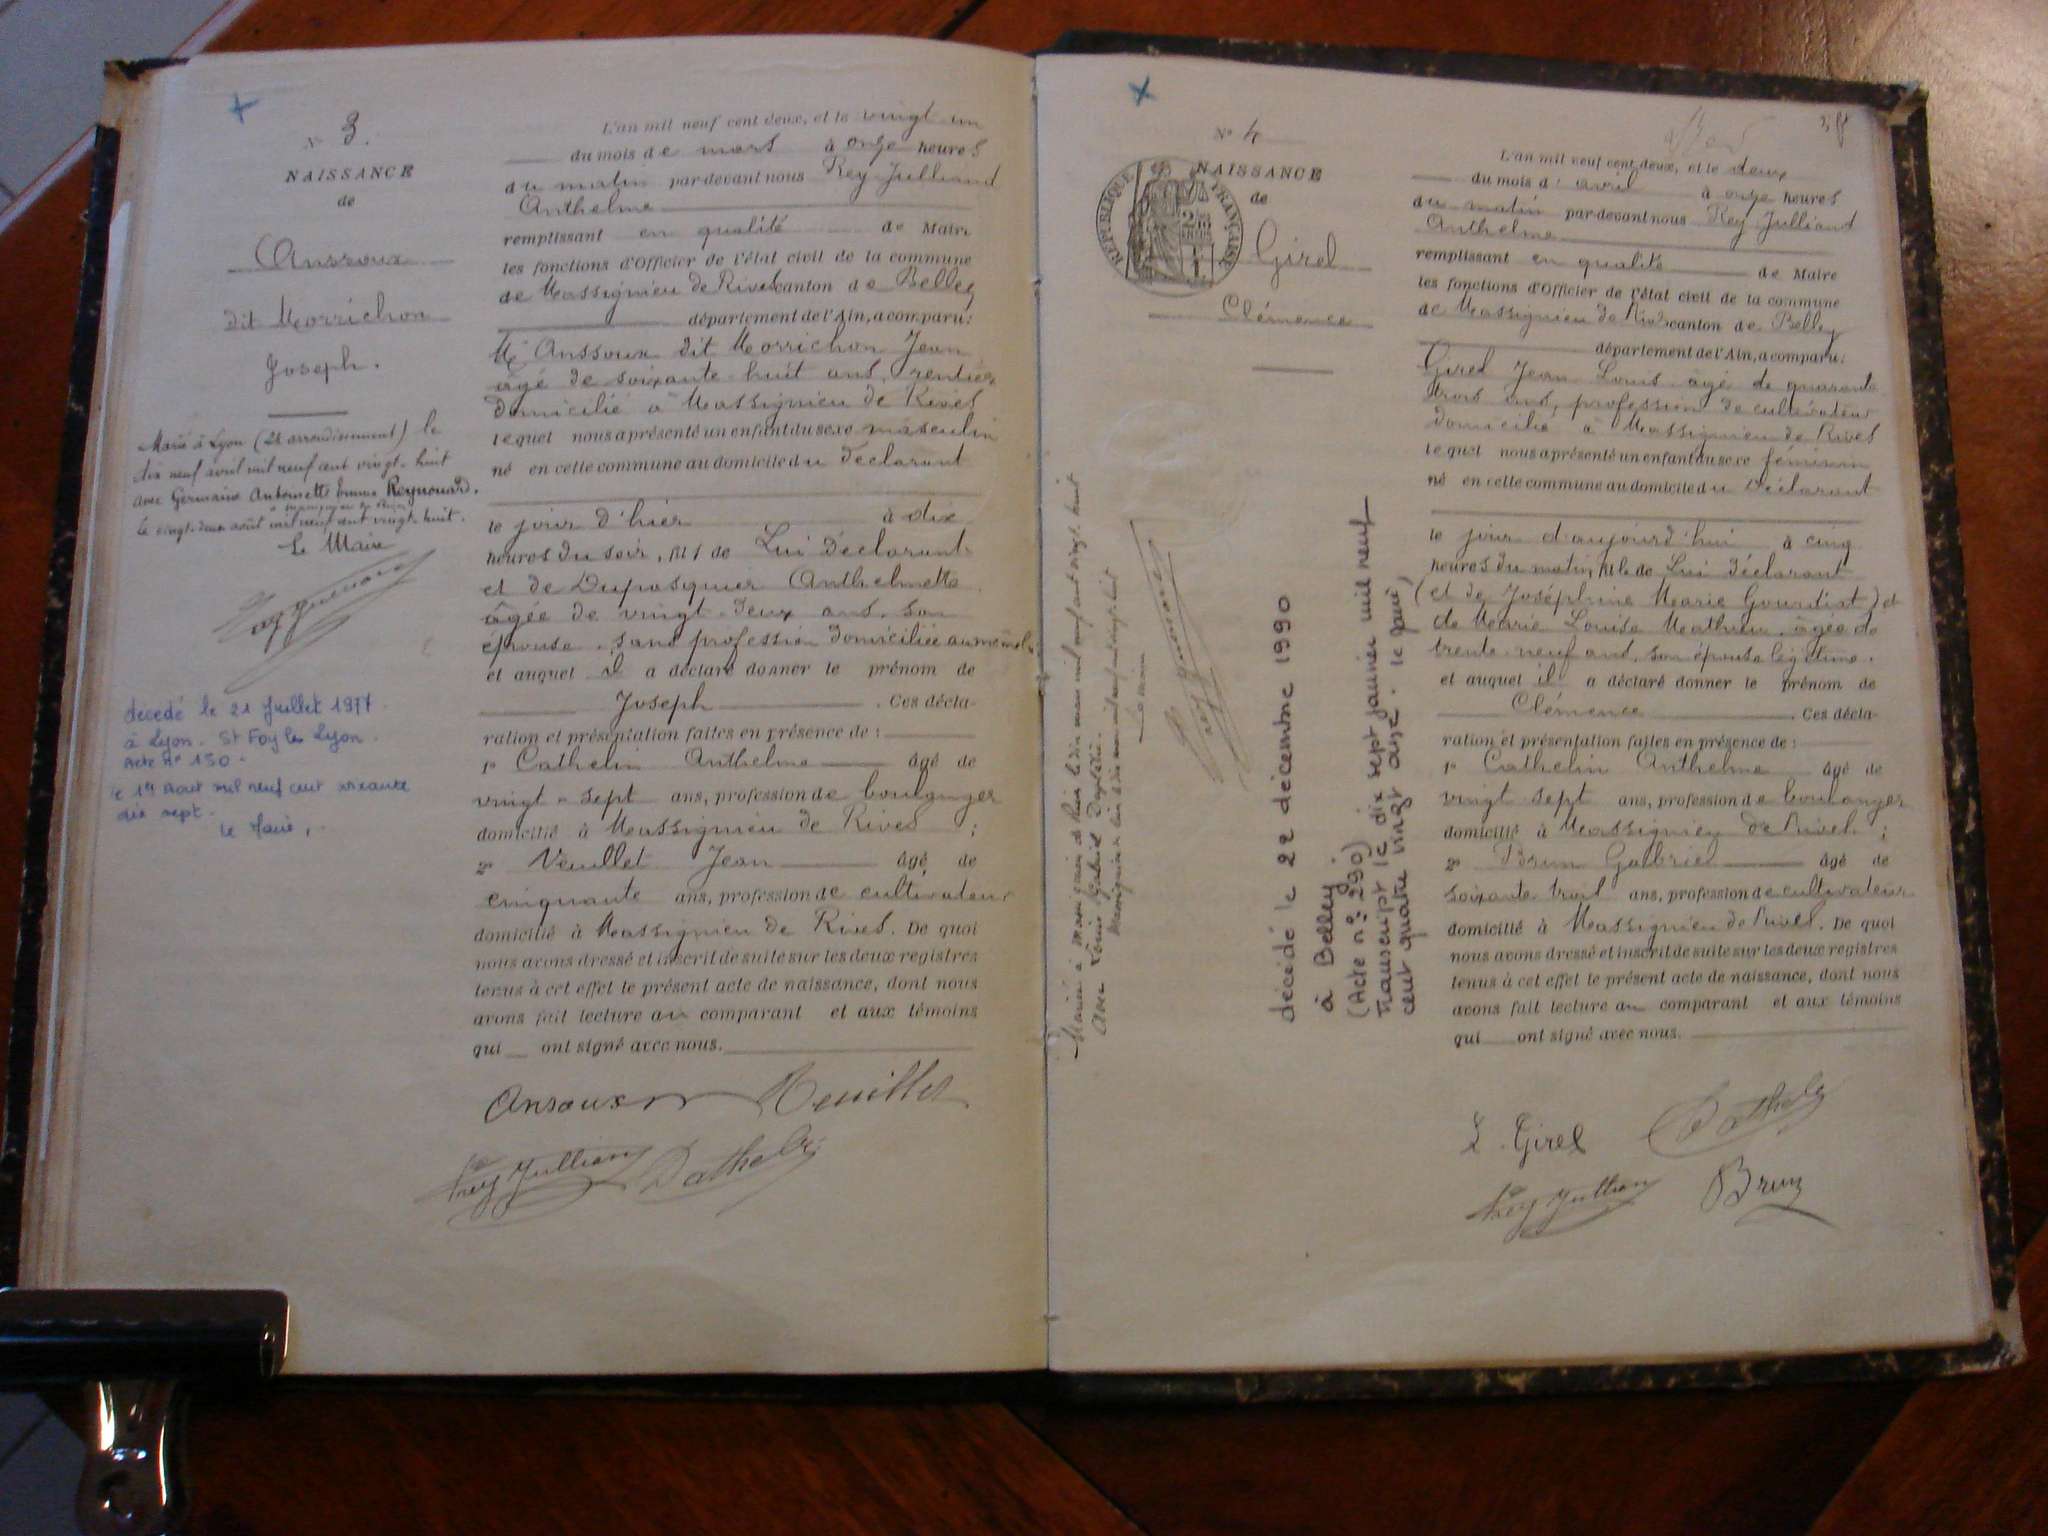 N° 3.
NAISSANCE
de
Anssoux
dit Morrichon
Joseph.
Marié à Lyon (2e arrondissement) le
dix neuf avril mil neuf cent vingt-huit
avec Germaine Antoinette Emma Reynouard.
le vingt-deux août mil neuf cent vingt-huit.
Le Maire
décédé le 21 Juillet 1977
à Lyon. St Foy les Lyon.
Acte n° 150.
le 19 Aout mil neuf cent soixante
dix sept.
le Maire,
L'an mil neuf cent deux, et le vingt un
du mois de mars à onze heures
du matin par-devant nous Rey-Julliand
Anthelme
remplissant en qualité de Maire
les fonctions d'Officier de l'état civil de la commune
de Massignieu de Rives canton de Belley
département de l'Ain, a comparu:
Mr Anssoux dit Morrichon Jean
âgé de soixante-huit ans, rentier
domicilié à Massignieu de Rives
lequel nous a présenté un enfant du sexe masculin
né en cette commune au domicile du déclarant
le jour d'hier à dix
heures du soir, fils de Lui déclarant
et de Dupasquier Anthelmette
âgée de vingt-deux ans, son
épouse, sans profession domiciliée au même lieu
et auquel il a déclaré donner le prénom de
Joseph. Ces décla-
ration et présentation faites en présence de :
1° Cathelin Anthelme âgé de
vingt-sept ans, profession de boulanger
domicilié à Massignieu de Rives ;
2° Veuillet Jean âgé de
cinquante ans, profession de cultivateur
domicilié à Massignieu de Rives. De quoi
nous avons dressé et inscrit de suite sur les deux registres
tenus à cet effet le présent acte de naissance, dont nous
avons fait lecture au comparant et aux témoins
qui ont signé avec nous.
Ansoux Veuillet
Rey Jullian Cathelin
N° 4
NAISSANCE
de
RÉPUBLIQUE FRANÇAISE
Girel
Clémence
Le maire
décédé le 22 décembre 1990
à Belley
(Acte n° 290)
Transcript le dix sept janvier mil neuf
cent quatre vingt onze. le Maire,
L'an mil neuf cent deux, et le deux
du mois d'avril à onze heures
du matin par-devant nous Rey Julliand
Anthelme
remplissant en qualité de Maire
les fonctions d'Officier de l'état civil de la commune
de Massignieu de Rives canton de Belley
département de l'Ain, a comparu:
Girel Jean Louis âgé de quarante
trois ans, profession de cultivateur
domicilié à Massignieu de Rives
lequel nous a présenté un enfant du sexe féminin
né en cette commune au domicile du Déclarant
le jour d'aujourd'hui à cinq
heures du matin, fille de Lui déclarant
(et de Joséphine Marie Gourdist) et
de Marie Louise Mathieu, âgée de
trente-neuf ans, son épouse légitime.
et auquel il a déclaré donner le prénom de
Clémence. Ces décla-
ration et présentation faites en présence de :
1° Cathelin Anthelme âgé de
vingt-sept ans, profession de boulanger
domicilié à Massignieu de Rives ;
2° Brun Gabriel âgé de
soixante trois ans, profession de cultivateur
domicilié à Massignieu de Rives. De quoi
nous avons dressé et inscrit de suite sur les deux registres
tenus à cet effet le présent acte de naissance, dont nous
avons fait lecture au comparant et aux témoins
qui ont signé avec nous.
L. Girel Cathelin
Rey Jullian Brun